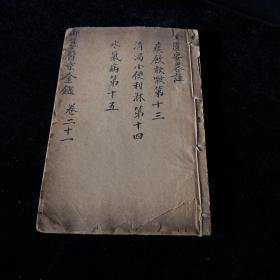 金匱要略註
痰飲欬嗽第十三
消渴小便利淋第十四
水氣病第十五
御纂醫宗金鑑 卷二十一